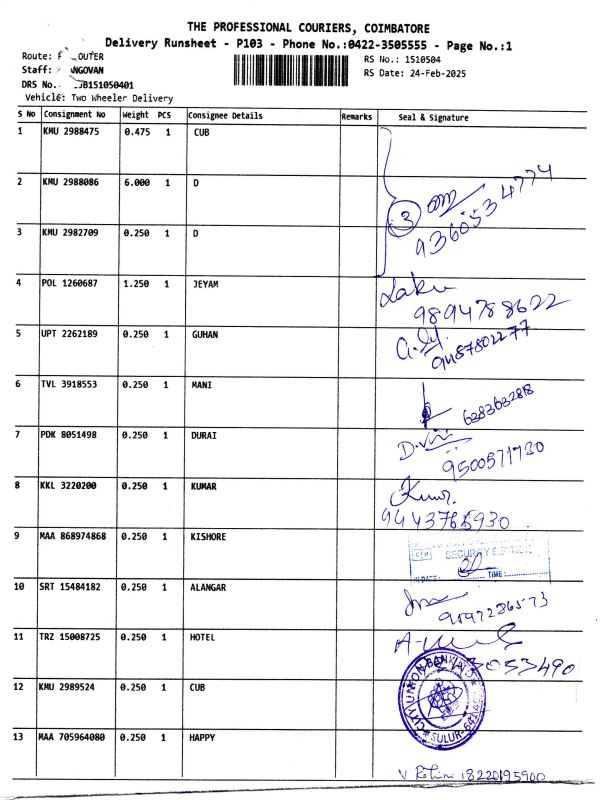 THE PROFESSIONAL COURIERS, COIMBATORE
Delivery Runsheet - P103 - Phone No.:0422-3505555 - Page No.:1
Route: OUTER
Staff: NGOVAN
DRS No. B151050401
Vehicle: Two Wheeler Delivery
RS No.: 1510504
RS Date: 24-Feb-2025
S No Consignment No Weight PCS Consignee Details Remarks Seal & Signature
1 KMU 2988475 0.475 1 CUB
2 KMU 2988086 6.000 1 D
3 9360534774
3 KMU 2982709 0.250 1 D
4 POL 1260687 1.250 1 JEYAM
9894788622
5 UPT 2262189 0.250 1 GUHAN
9487802277
6 TVL 3918553 0.250 1 MANI
6383632818
7 PDK 8051498 0.250 1 DURAI
9500571730
8 KKL 3220200 0.250 1 KUMAR
Kumar
9443765930
9 MAA 868974868 0.250 1 KISHORE
SECURITY
IN DATE: TIME:
10 SRT 15484182 0.250 1 ALANGAR
11 TRZ 15008725 0.250 1 HOTEL
12 KMU 2989524 0.250 1 CUB
CITY UNION BANK LTD
SULUR
13 MAA 705964080 0.250 1 HAPPY
18220195900